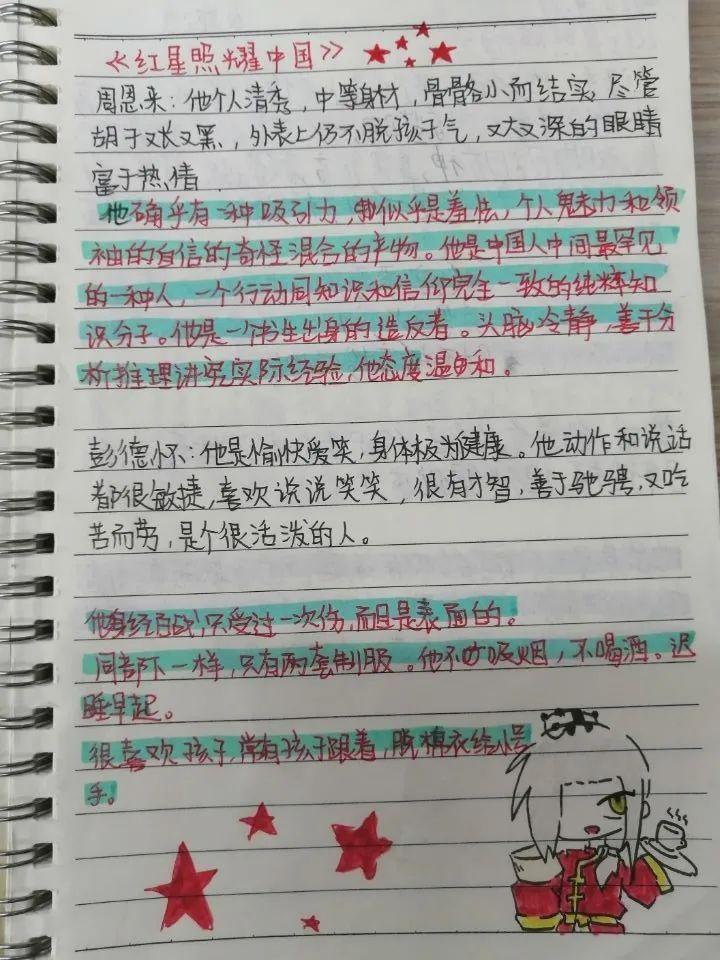 《红星照耀中国》
周恩来：他个人清秀，中等身材，骨骼小而结实，尽管
胡子又长又黑，外表上仍不脱孩子气，又大又深的眼睛
富于热情.
他确乎有一种吸引力，似乎是羞怯，个人魅力和领
袖的自信的奇怪混合的产物。他是中国人中间最罕见
的一种人，一个行动同知识和信仰完全一致的纯粹知
识分子。他是一个书生出身的造反者。头脑冷静，善于分
析推理讲究实际经验，他态度温和。
彭德怀：他是愉快爱笑，身体极为健康。他动作和说话
都很敏捷，喜欢说说笑笑，很有才智，善于驰骋，又吃
苦而劳，是个很活泼的人。
他身经百战，只受过一次伤，而且是表面的。
同部下一样，只有两套制服。他不吸烟，不喝酒。迟
睡早起。
很喜欢孩子，常有孩子跟着，脱棉衣给小号
手。